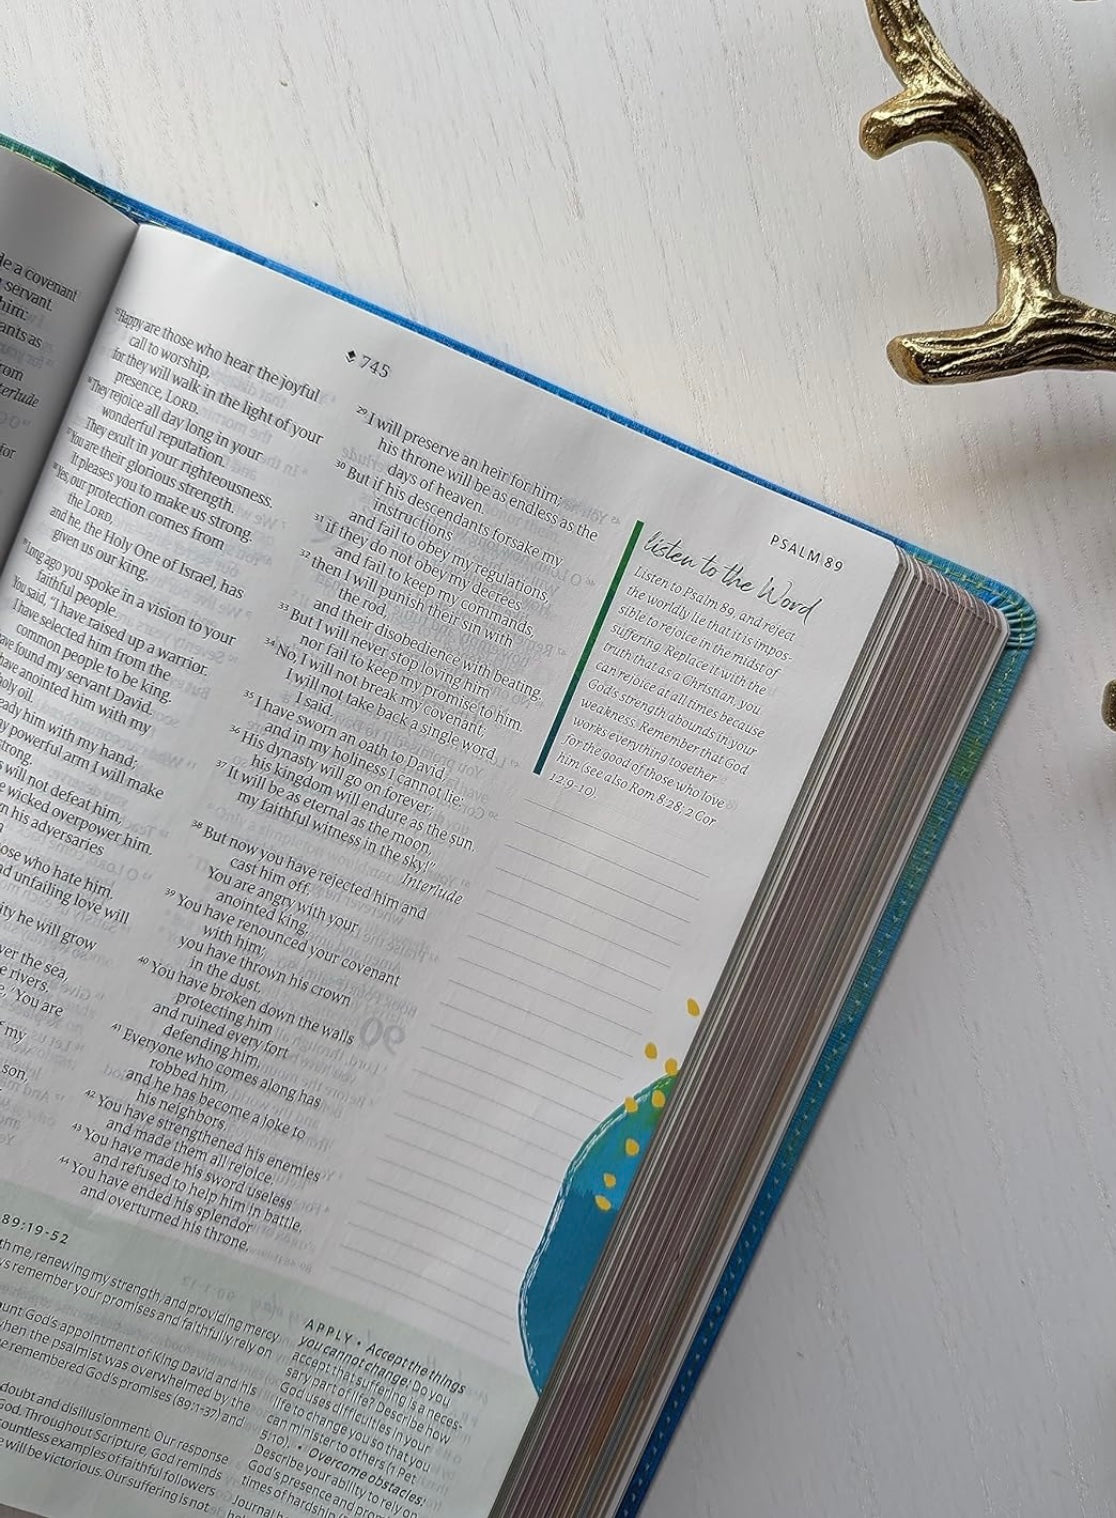 le a covenant
servant.
him:
ants as
rom
terlude
for
745
PSALM 89
15 Happy are those who hear the joyful
call to worship,
for they will walk in the light of your
presence, LORD.
16 They rejoice all day long in your
wonderful reputation.
They exult in your righteousness.
17 You are their glorious strength.
It pleases you to make us strong.
18 Yes, our protection comes from
the LORD,
and he, the Holy One of Israel, has
given us our king.
19 Long ago you spoke in a vision to your
faithful people.
You said, “I have raised up a warrior.
I have selected him from the
common people to be king.
ave found my servant David.
have anointed him with my
holy oil.
eady him with my hand;
y powerful arm I will make
strong.
s will not defeat him,
e wicked overpower him.
n his adversaries
ose who hate him.
nd unfailing love will
ity he will grow
ver the sea,
e rivers.
e, ‘You are
f my
son,
29 I will preserve an heir for him;
his throne will be as endless as the
days of heaven.
30 But if his descendants forsake my
instructions
and fail to obey my regulations,
31 if they do not obey my decrees
and fail to keep my commands,
32 then I will punish their sin with
the rod,
and their disobedience with beating.
33 But I will never stop loving him
nor fail to keep my promise to him.
34 No, I will not break my covenant;
I will not take back a single word
I said.
35 I have sworn an oath to David,
and in my holiness I cannot lie:
36 His dynasty will go on forever;
his kingdom will endure as the sun.
37 It will be as eternal as the moon,
my faithful witness in the sky!”
Interlude
38 But now you have rejected him and
cast him off.
You are angry with your
anointed king.
39 You have renounced your covenant
with him;
you have thrown his crown
in the dust.
40 You have broken down the walls
protecting him
and ruined every fort
defending him.
41 Everyone who comes along has
robbed him,
and he has become a joke to
his neighbors.
42 You have strengthened his enemies
and made them all rejoice.
43 You have made his sword useless
and refused to help him in battle.
44 You have ended his splendor
and overturned his throne.
listen to the Word
Listen to Psalm 89, and reject
the worldly lie that it is impos-
sible to rejoice in the midst of
suffering. Replace it with the
truth that as a Christian, you
can rejoice at all times because
God's strength abounds in your
weakness. Remember that God
works everything together
for the good of those who love
him (see also Rom 8:28; 2 Cor
12:9-10).
89:19-52
th me, renewing my strength, and providing mercy
ys remember your promises and faithfully rely on
unt God's appointment of King David and his
when the psalmist was overwhelmed by the
e remembered God's promises (89:1-37) and
doubt and disillusionment. Our response
God. Throughout Scripture, God reminds
countless examples of faithful followers
e will be victorious. Our suffering is not
APPLY • Accept the things
you cannot change: Do you
accept that suffering is a neces-
sary part of life? Describe how
God uses difficulties in your
life to change you so that you
can minister to others (1 Pet
5:10). • Overcome obstacles:
Describe your ability to rely on
God's presence and prom
times of hardship
Journal